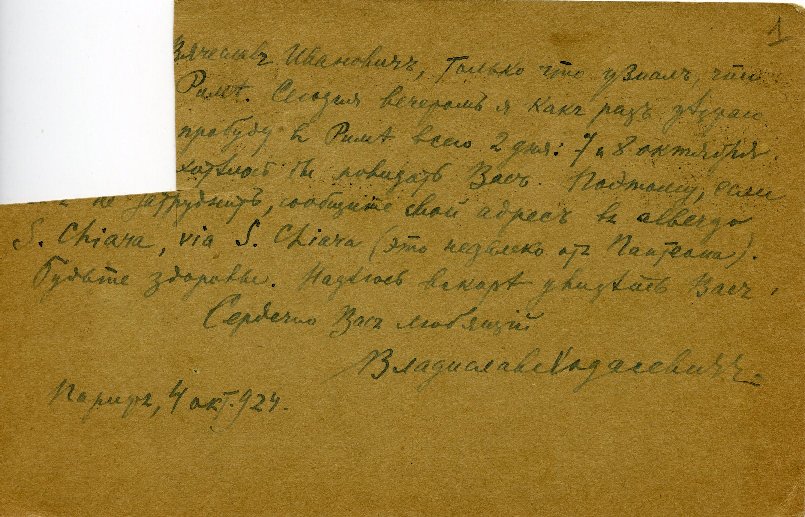 1
Вячеславъ Ивановичъ, только что узналъ, что
Римѣ. Сегодня вечеромъ я какъ разъ уѣзжаю
пробуду въ Римѣ всего 2 дня: 7 и 8 октября.
хотѣлось бы повидать Васъ. Поэтому, если
не затруднитъ, сообщите свой адресъ в albergo
S. Chiara, via S. Chiara (это недалеко отъ Пантеона).
Будьте здоровы. Надѣюсь вскорѣ увидѣть Васъ.
Сердечно Васъ любящій
Владиславъ Ходасевичъ.
Парижъ, 4 окт. 924.